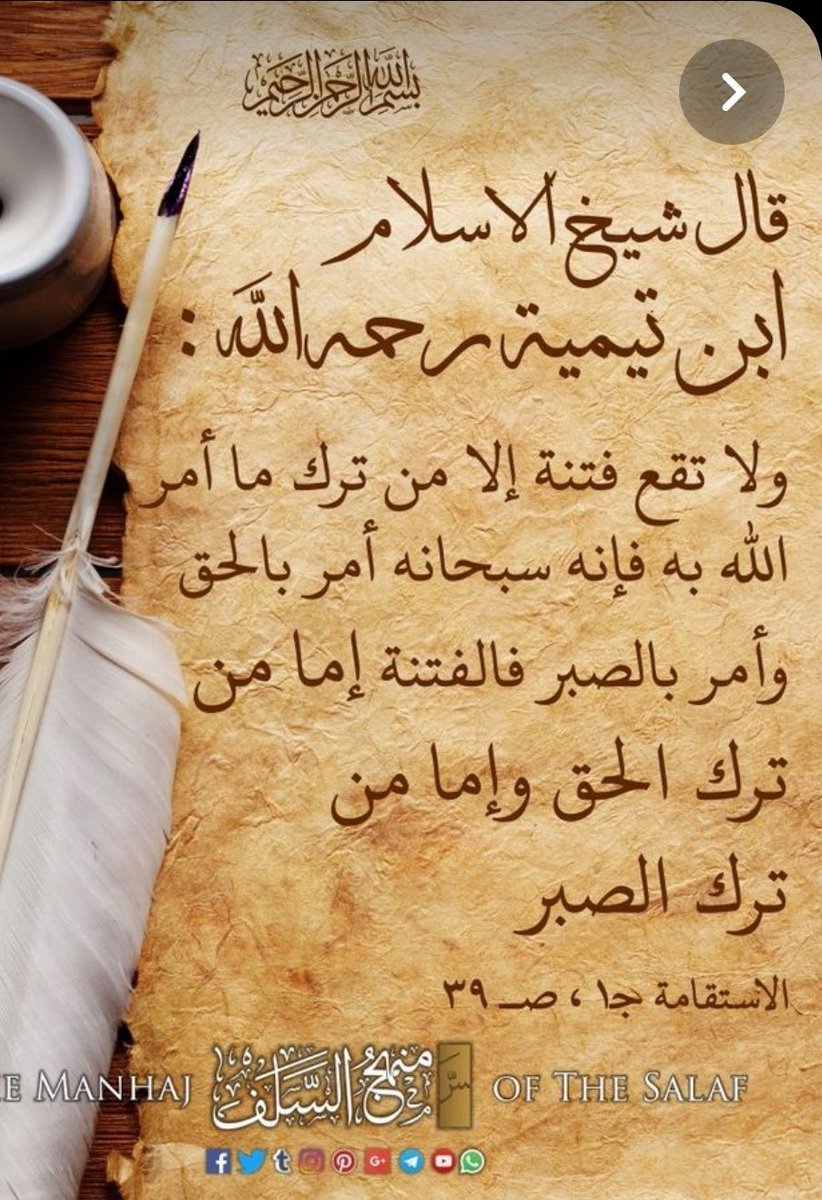 بسم الله الرحمن الرحيم
قال شيخ الاسلام
ابن تيمية رحمه الله :
ولا تقع فتنة إلا من ترك ما أمر
الله به فإنه سبحانه أمر بالحق
وأمر بالصبر فالفتنة إما من
ترك الحق وإما من
ترك الصبر
الاستقامة ج١ ، صـ ٣٩
E MANHAJ منهج السلف OF THE SALAF